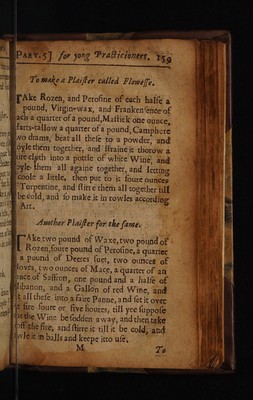 PART.5] for yong Practicioners. 159
To make a Plaister called Flowesse.
TAke Rozen, and Perosine of each halfe a
pound, Virgin-wax, and Frankensence of
each a quarter of a pound, Mastick one ounce,
Harts-tallow a quarter of a pound, Camphere
two drams, beat all these to a powder, and
boyle them together, and straine it thorow a
cloth into a pottle of white Wine, and
boyle them all againe together, and letting
coole a little, then put to it foure ounces
Torpentine, and stirre them all together till
be cold, and so make it in rowles according
Art.
Another Plaister for the same.
TAke two pound of Waxe, two pound of
Rozen, foure pound of Perosine, a quarter
a pound of Deeres suet, two ounces of
Cloves, two ounces of Mace, a quarter of an
ounce of Saffron, one pound and a halfe of
Olibanon, and a Gallon of red Wine, and
all these into a faire Panne, and set it over
fire foure or five houres, till yee suppose
the Wine be sodden away, and then take
off the fire, and stirre it till it be cold, and
in balls and keepe itto use.
M To